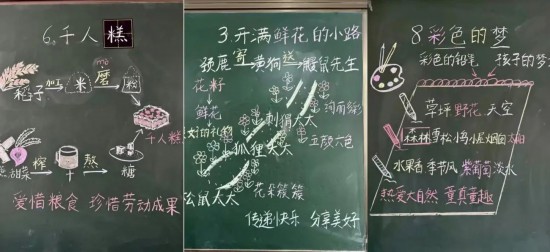 6.千人糕
稻子 加工 米 磨 粉
千人糕
甜菜 榨 熬 糖
爱惜粮食 珍惜劳动成果
3.开满鲜花的小路
鹿 寄 黄狗 送 鼹鼠先生
花籽
鲜花
美好的礼物
刺猬太太
绚丽多彩
狐狸太太
五颜六色
松鼠太太
花朵簇簇
传递快乐 分享美好
8彩色的梦
彩色的铅笔 孩子的梦
草坪 野花 天空
森林 雪松 小屋 烟囱 太阳
水果香 季节风 紫葡萄 淡水
热爱大自然 童真童趣